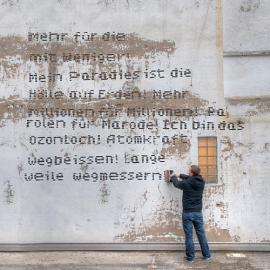 Mehr für die
mit weniger
Mein Paradies ist die
Hölle auf Erden! Mehr
Millionen für Millionen! Pa
rolen für Marode! Ich bin das
Ozonloch! Atomkraft
wegbeissen! Lange
weile wegmessern